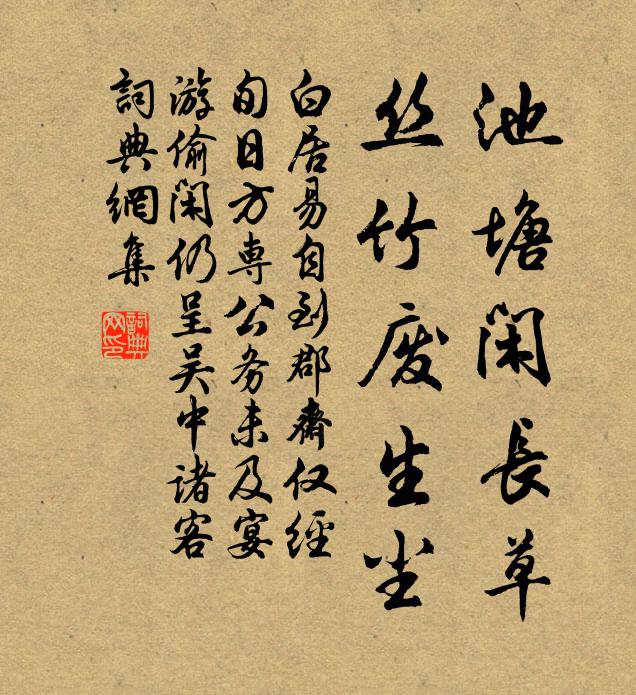 池塘闲長草
丝竹废生尘
白居易自到郡齋仅經
旬日方専公务未及宴
游偷闲仍呈吴中诸客
詞典網集
詞典网印